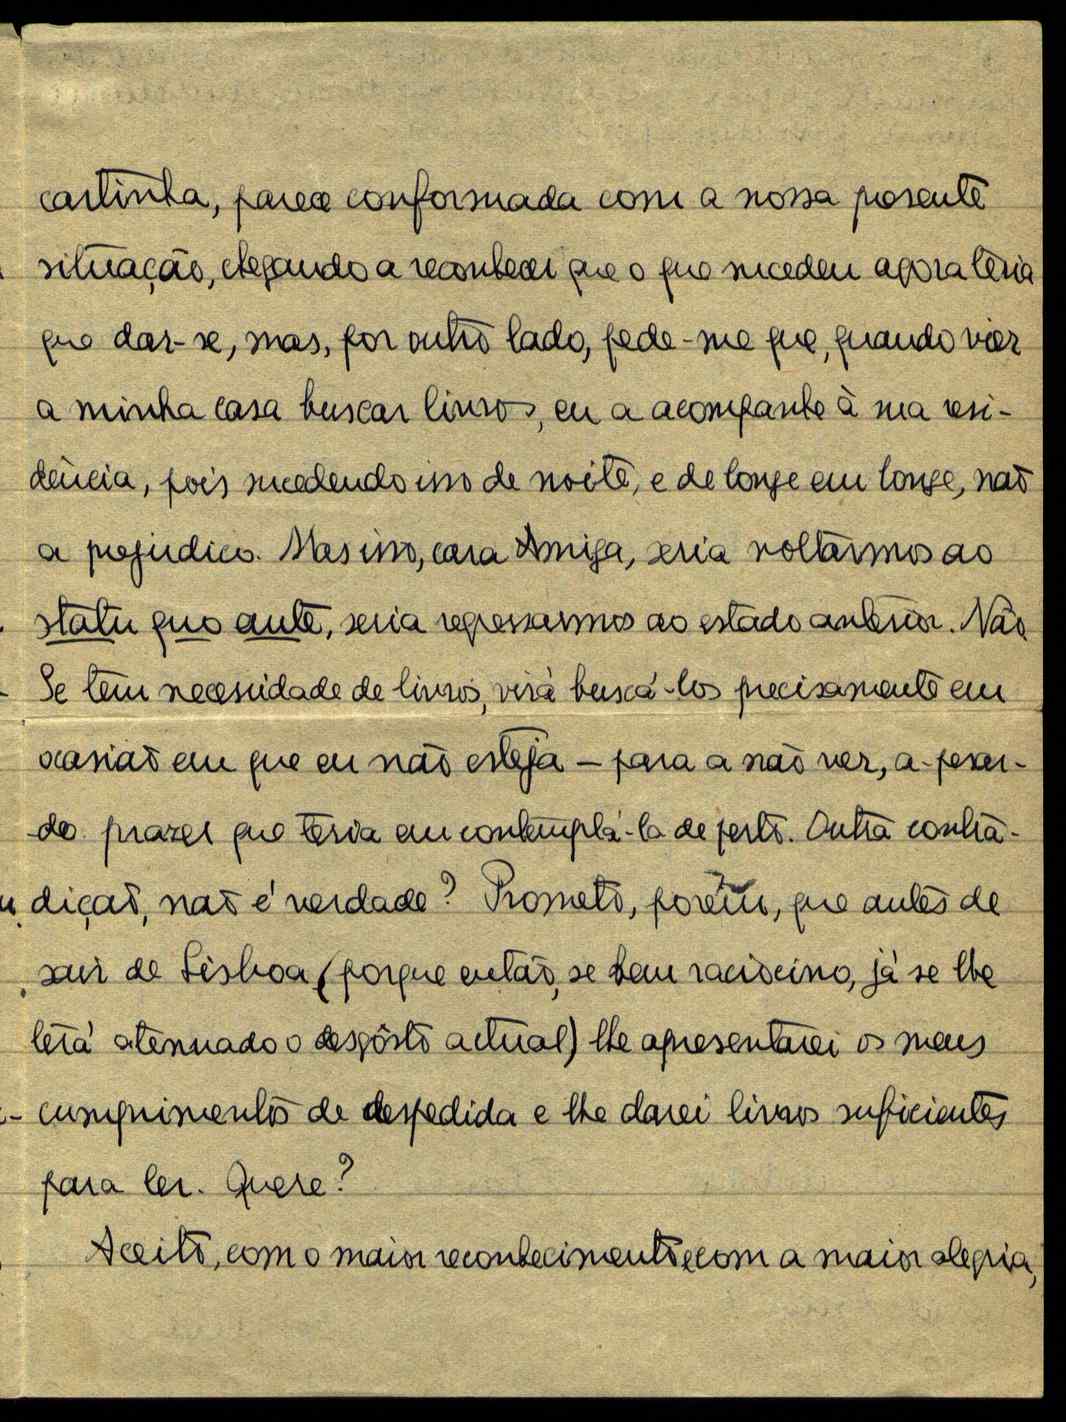 cartinha, parece conformada com a nossa presente
situação, chegando a reconhecer que o que sucedeu agora teria
que dar-se, mas, por outro lado, pede-me que, quando vier
a minha casa buscar livros, eu a acompanhe à sua resi-
dência, pois sucedendo isso de noite, e de longe em longe, não
a prejudico. Mas isso, cara Amiga, seria voltarmos ao
statu quo ante, seria regressarmos ao estado anterior. Não
Se tem necessidade de livros, virá buscá-los precisamente em
ocasião em que eu não esteja – para a não ver, a-pesar-
-do prazer que teria em contemplá-la de perto. Outra contra-
dição, não é verdade? Prometo, porém, que antes de
sair de Lisboa (porque então, se bem raciocino, já se lhe
terá atenuado o desgôsto actual) lhe apresentarei os meus
cumprimentos de despedida e lhe darei livros suficientes
para ler. Quere?
Aceito, com o maior reconhecimento e com a maior alegria,